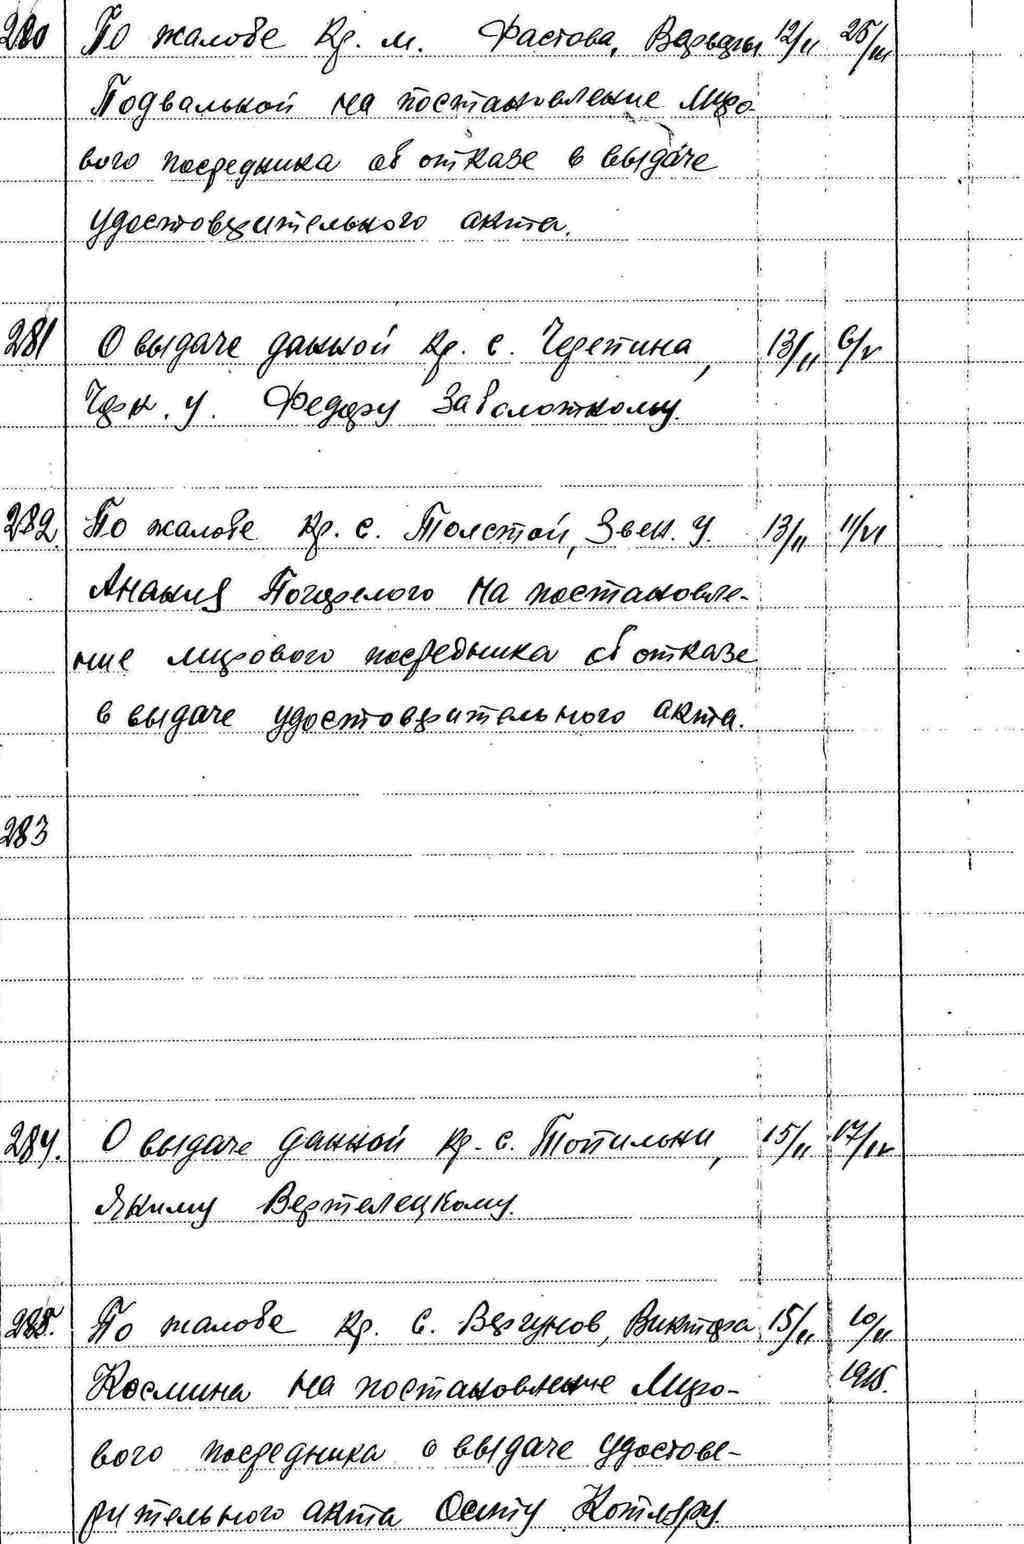 280 По жалобе кр. м. Фастова, Варвары 12/II 25/III
Подвальной на постановление Миро-
вого посредника об отказе в выдаче
удостоверительного акта.
281 О выдаче данной кр. с. Черепина, 13/II 6/V
Черк. у. Федору Заболотному.
282. По жалобе кр. с. Толстой, Звен. у. 13/II 11/VI
Анания Погорелого на постановле-
ние мирового посредника об отказе
в выдаче удостоверительного акта.
283
284. О выдаче данной кр. с. Топильни, 15/II 17/IV
Якиму Вертелецкому.
285. По жалобе кр. с. Вергунов, Виктора 15/II 10/II
Космина на постановление Миро- 1915.
вого посредника о выдаче удостове-
рительного акта Осипу Котляру.